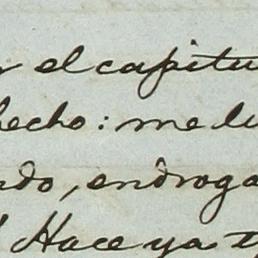 r el capitu
hecho: me lu
ndo, endroga
Hace ya t